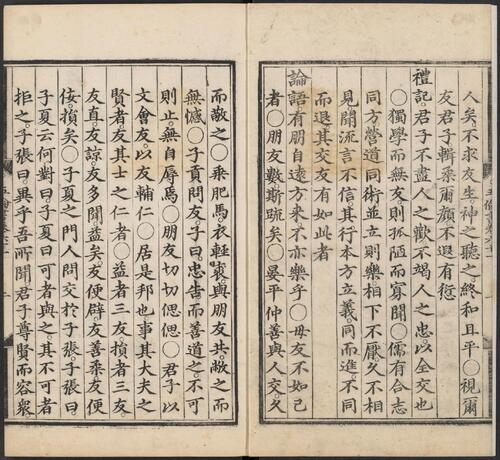 人矣不求友生。神之聽之。終和且平〇視爾
友君子輯柔爾顏不遐有愆
禮記。君子不盡人之歡不竭人之忠。以全交也
〇獨學而無友。則孤陋而寡聞〇儒有合志
同方。營道同術並立則樂相下不厭。久不相
見聞流言不信。其行本方立義。同而進不同
而退其交友有如此者
論語有朋自遠方來不亦樂乎〇毋友不如己
者〇朋友數斯疏矣〇晏平仲善與人交。久
而敬之〇乘肥馬衣輕裘與朋友共。敝之而
無憾〇子貢問友子曰。忠告而善道之。不可
則止。無自辱焉〇朋友切切偲偲〇君子以
文會友。以友輔仁〇居是邦也事其大夫之
賢者友其士之仁者〇益者三友損者三友
友直友諒友多聞益矣。友便辟。友善柔友便
佞。損矣〇子夏之門人問交於子張。子張曰
子夏云何對曰。子夏曰可者與之。其不可者
拒之子張曰。異乎吾所聞君子尊賢而容衆